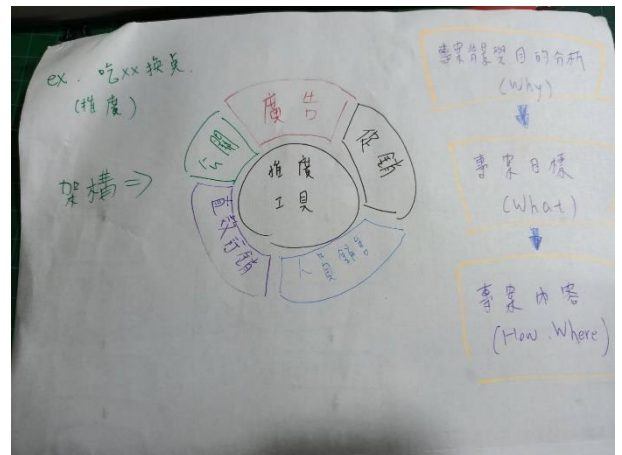 ex. 吃xx換桌.
(推廣)
架構⇒
廣告
促銷
人員銷售
直效行銷
公關
推廣
工具
專案背景與目的分析
(Why)
專案目標
(What)
專案內容
(How.Where)